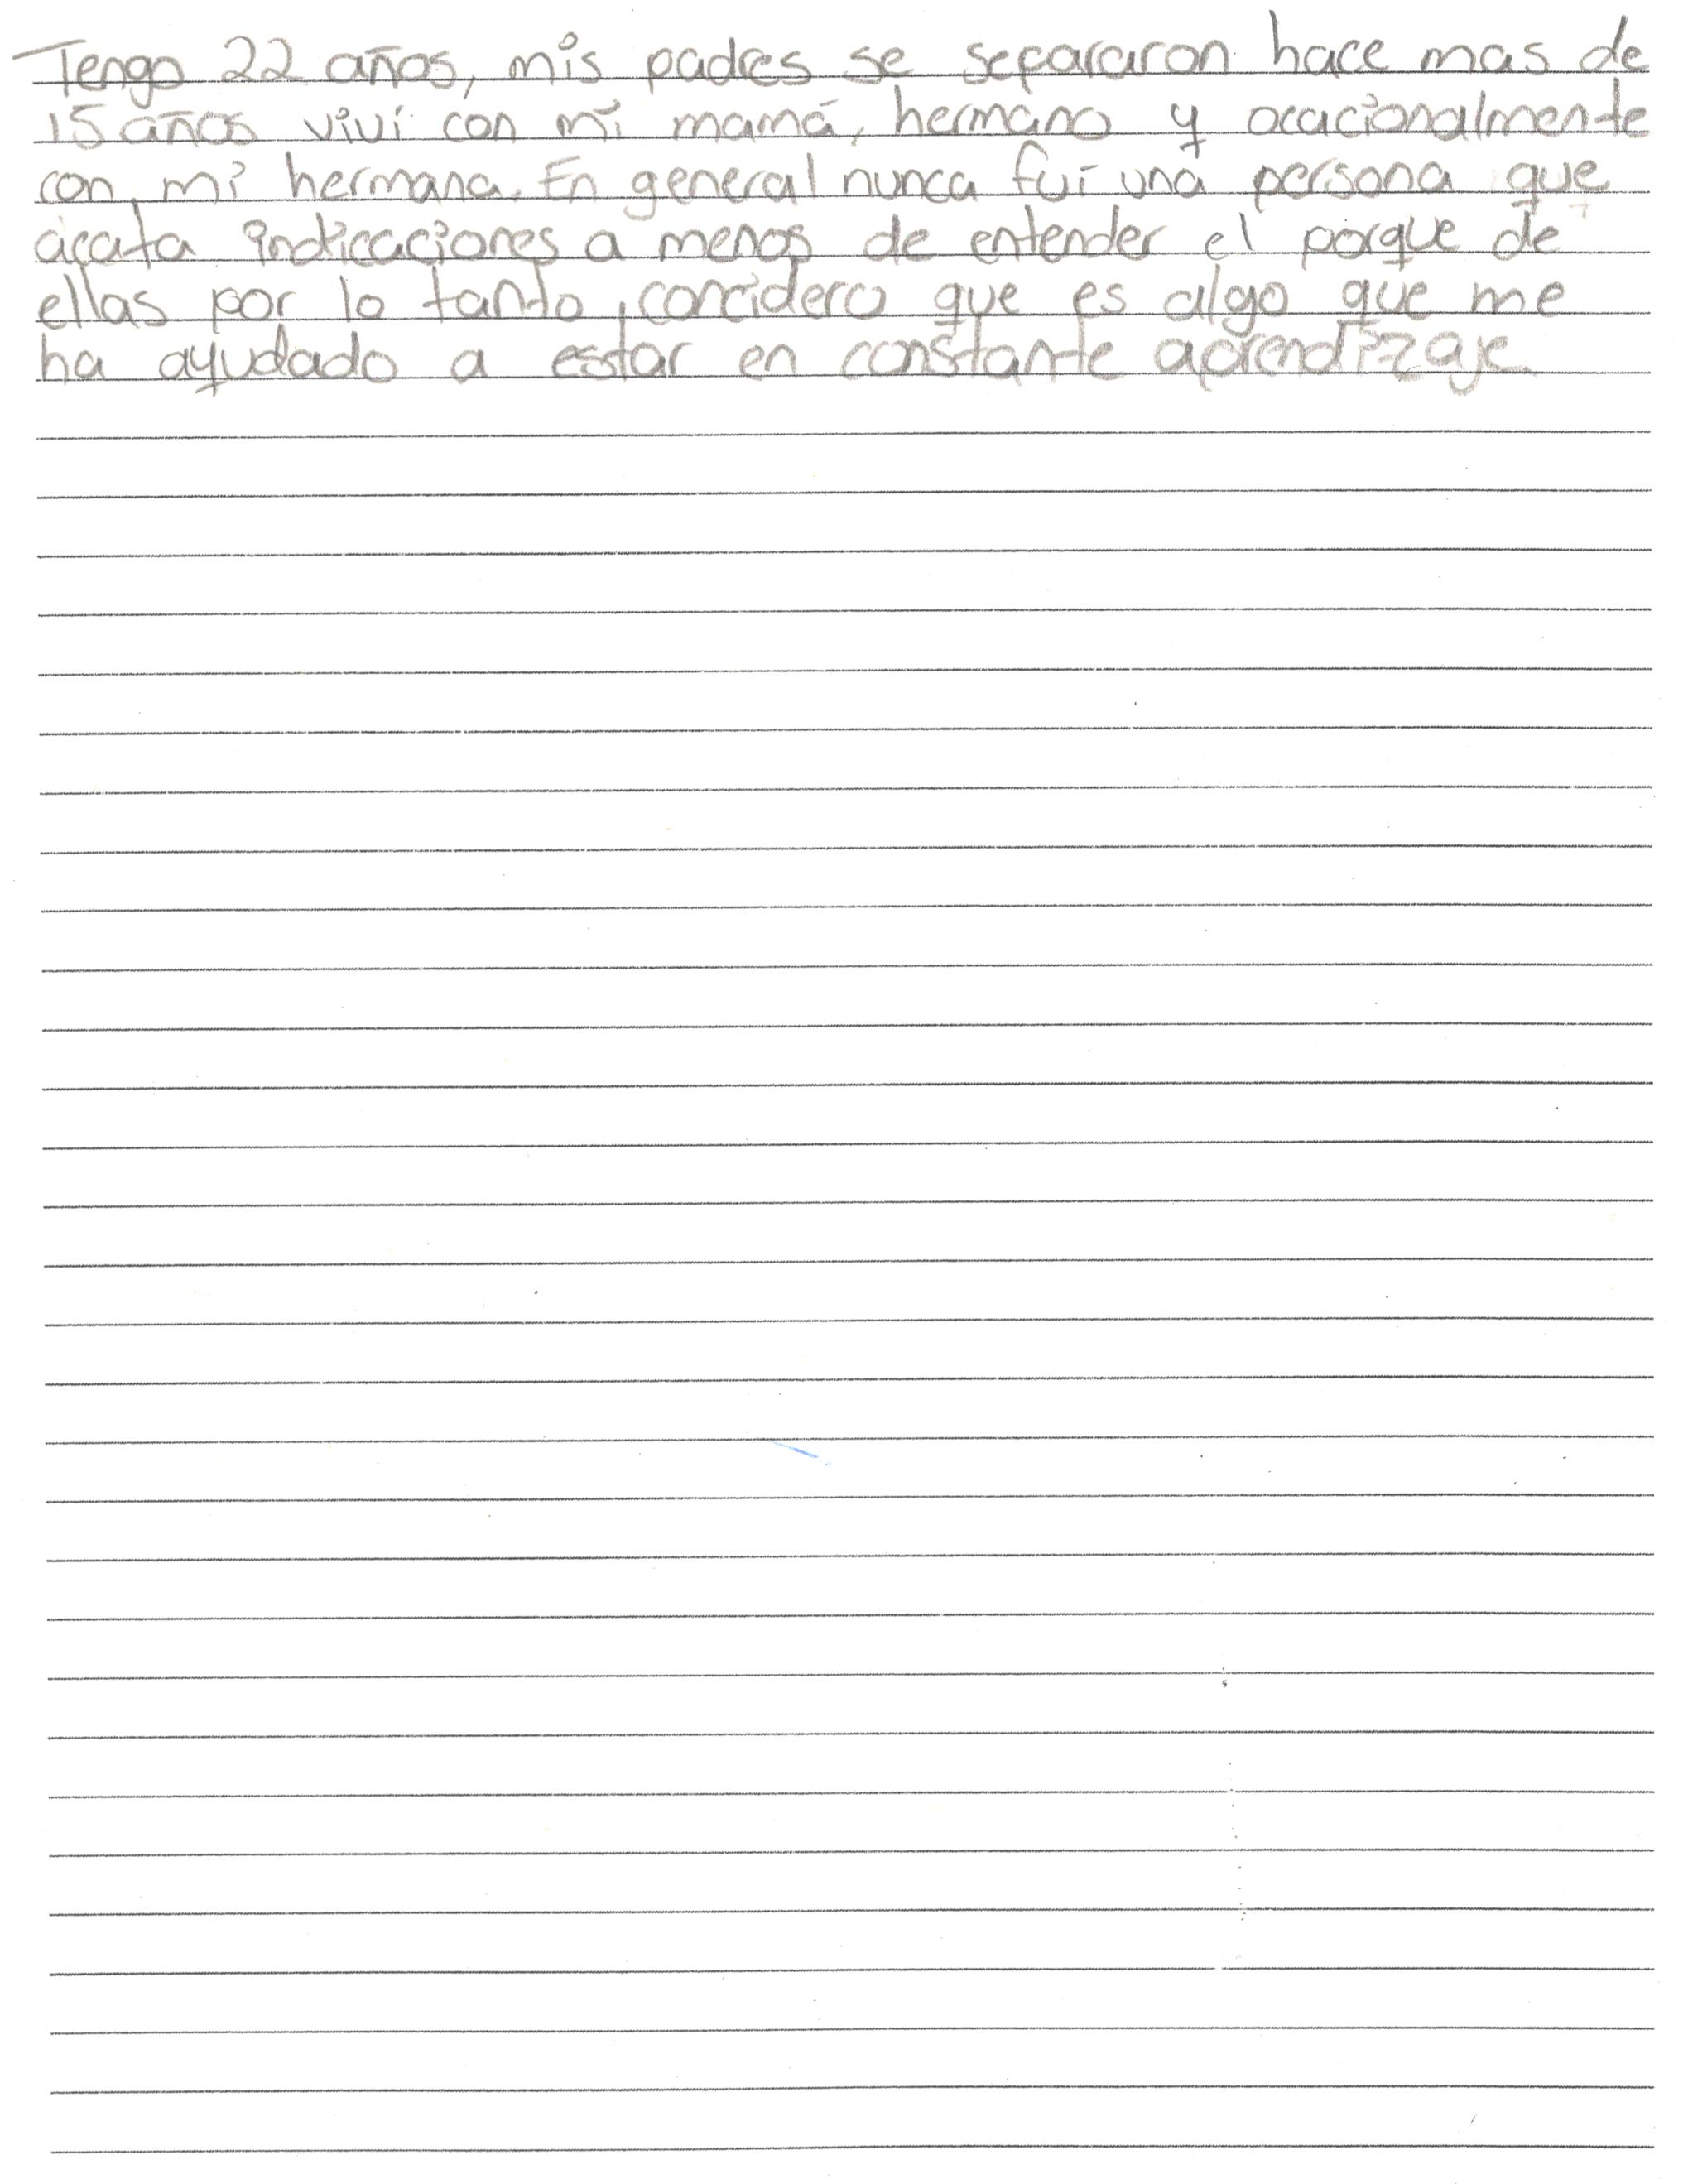 Tengo 22 años, mis padres se separaron hace mas de
15 años viví con mi mamá, hermano y ocacionalmente
con mi hermana. En general nunca fuí una persona que
acata indicaciones a menos de entender el porque de
ellas por lo tanto, concidero que es algo que me
ha ayudado a estar en constante aprendizaje.